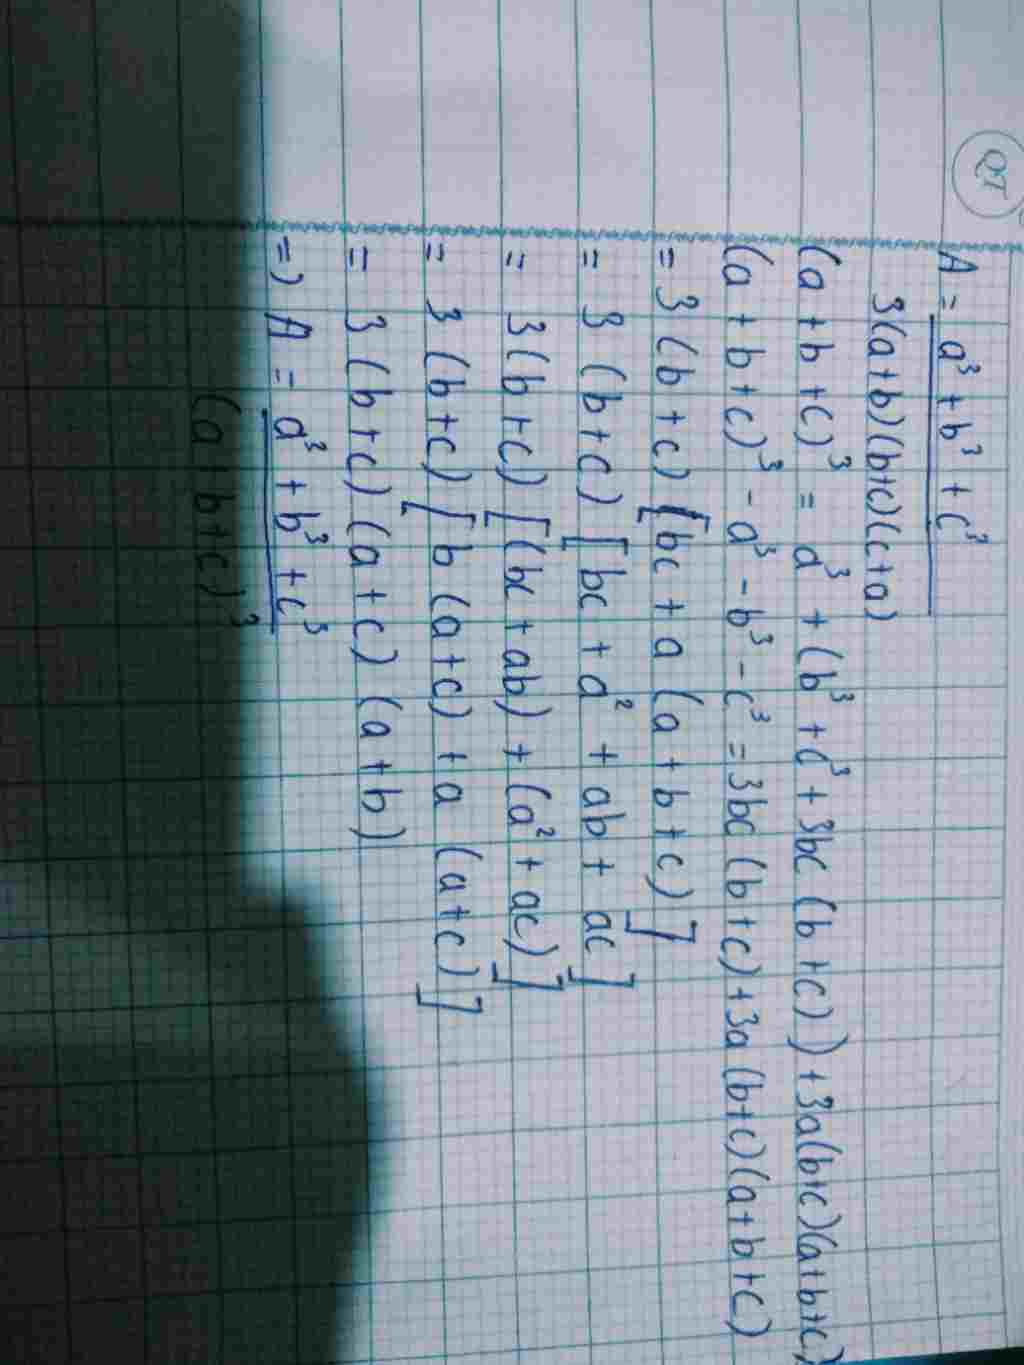 QT
A = a³ + b³ + c³
3(a+b)(b+c)(c+a)
(a + b + c)³ = a³ + (b³ + c³ + 3bc (b + c)) + 3a(b+c)(a+b+c)
(a + b + c)³ - a³ - b³ - c³ = 3bc (b + c) + 3a (b+c) (a + b + c)
= 3 (b + c) [bc + a (a + b + c)]
= 3 (b+c) [bc + a² + ab + ac]
= 3 (b+c) [(bc + ab) + (a² + ac)]
= 3 (b+c) [b (a+c) + a (a+c)]
= 3 (b+c) (a+c) (a+b)
=) A = a³ + b³ + c³
(a + b + c)³